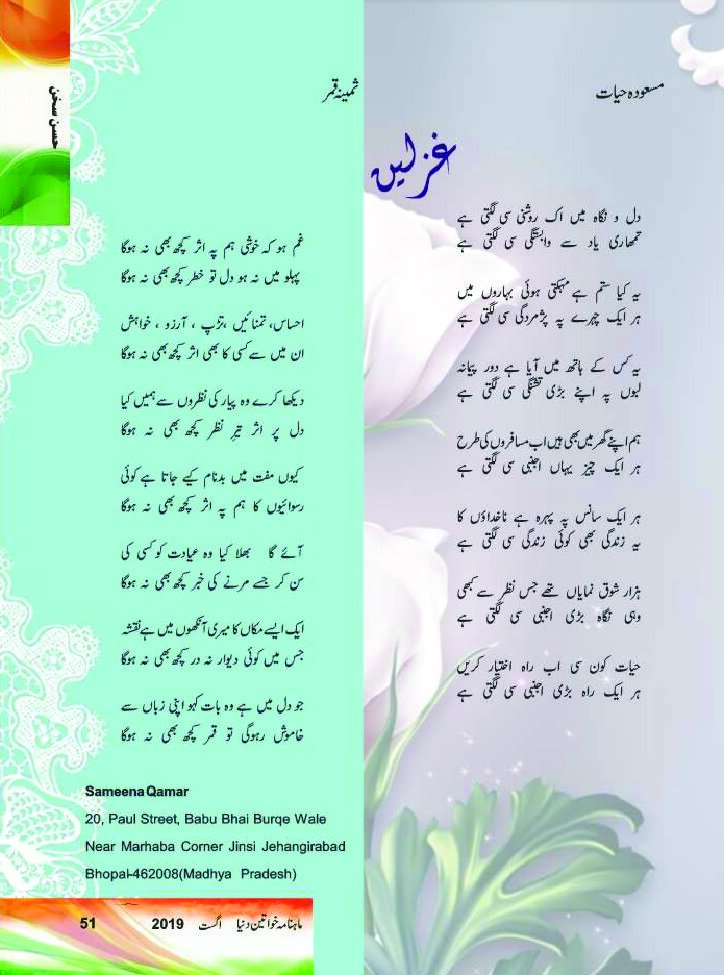 حسن سخن
مسعودہ حیات
غزلیں
دل و نگاہ میں اک روشنی سی لگتی ہے
تمھاری یاد سے وابستگی سی لگتی ہے
یہ کیا ستم ہے مہکتی ہوئی بہاروں میں
ہر ایک چہرے پہ پژمردگی سی لگتی ہے
یہ کس کے ہاتھ میں آیا ہے دور پیمانہ
لبوں پہ اپنے بڑی تشنگی سی لگتی ہے
ہم اپنے گھر میں بھی ہیں اب مسافروں کی طرح
ہر ایک چیز یہاں اجنبی سی لگتی ہے
ہر ایک سانس پہ پہرہ ہے ناخداؤں کا
یہ زندگی بھی کوئی زندگی سی لگتی ہے
ہزار شوق نمایاں تھے جس نظر سے کبھی
وہی نگاہ بڑی اجنبی سی لگتی ہے
حیات کون سی اب راہ اختیار کریں
ہر ایک راہ بڑی اجنبی سی لگتی ہے
ثمینہ قمر
غم ہو کہ خوشی ہم پہ اثر کچھ بھی نہ ہوگا
پہلو میں نہ ہو دل تو خطر کچھ بھی نہ ہوگا
احساس، تمنائیں ،تڑپ ، آرزو ، خواہش
ان میں سے کسی کا بھی اثر کچھ بھی نہ ہوگا
دیکھا کرے وہ پیار کی نظروں سے ہمیں کیا
دل پر اثر تیرِ نظر کچھ بھی نہ ہوگا
کیوں مفت میں بدنام کیے جاتا ہے کوئی
رسوائیوں کا ہم پہ اثر کچھ بھی نہ ہوگا
آئے گا بھلا کیا وہ عیادت کو کسی کی
سن کر جسے مرنے کی خبر کچھ بھی نہ ہوگا
ایک ایسے مکاں کا میری آنکھوں میں ہے نقشہ
جس میں کوئی دیوار نہ در کچھ بھی نہ ہوگا
جو دل میں ہے وہ بات کہو اپنی زباں سے
خاموش رہوگی تو قمر کچھ بھی نہ ہوگا
Sameena Qamar
20, Paul Street, Babu Bhai Burqe Wale
Near Marhaba Corner Jinsi Jehangirabad
Bhopal-462008(Madhya Pradesh)
ماہنامہ خواتین دنیا اگست 2019 51